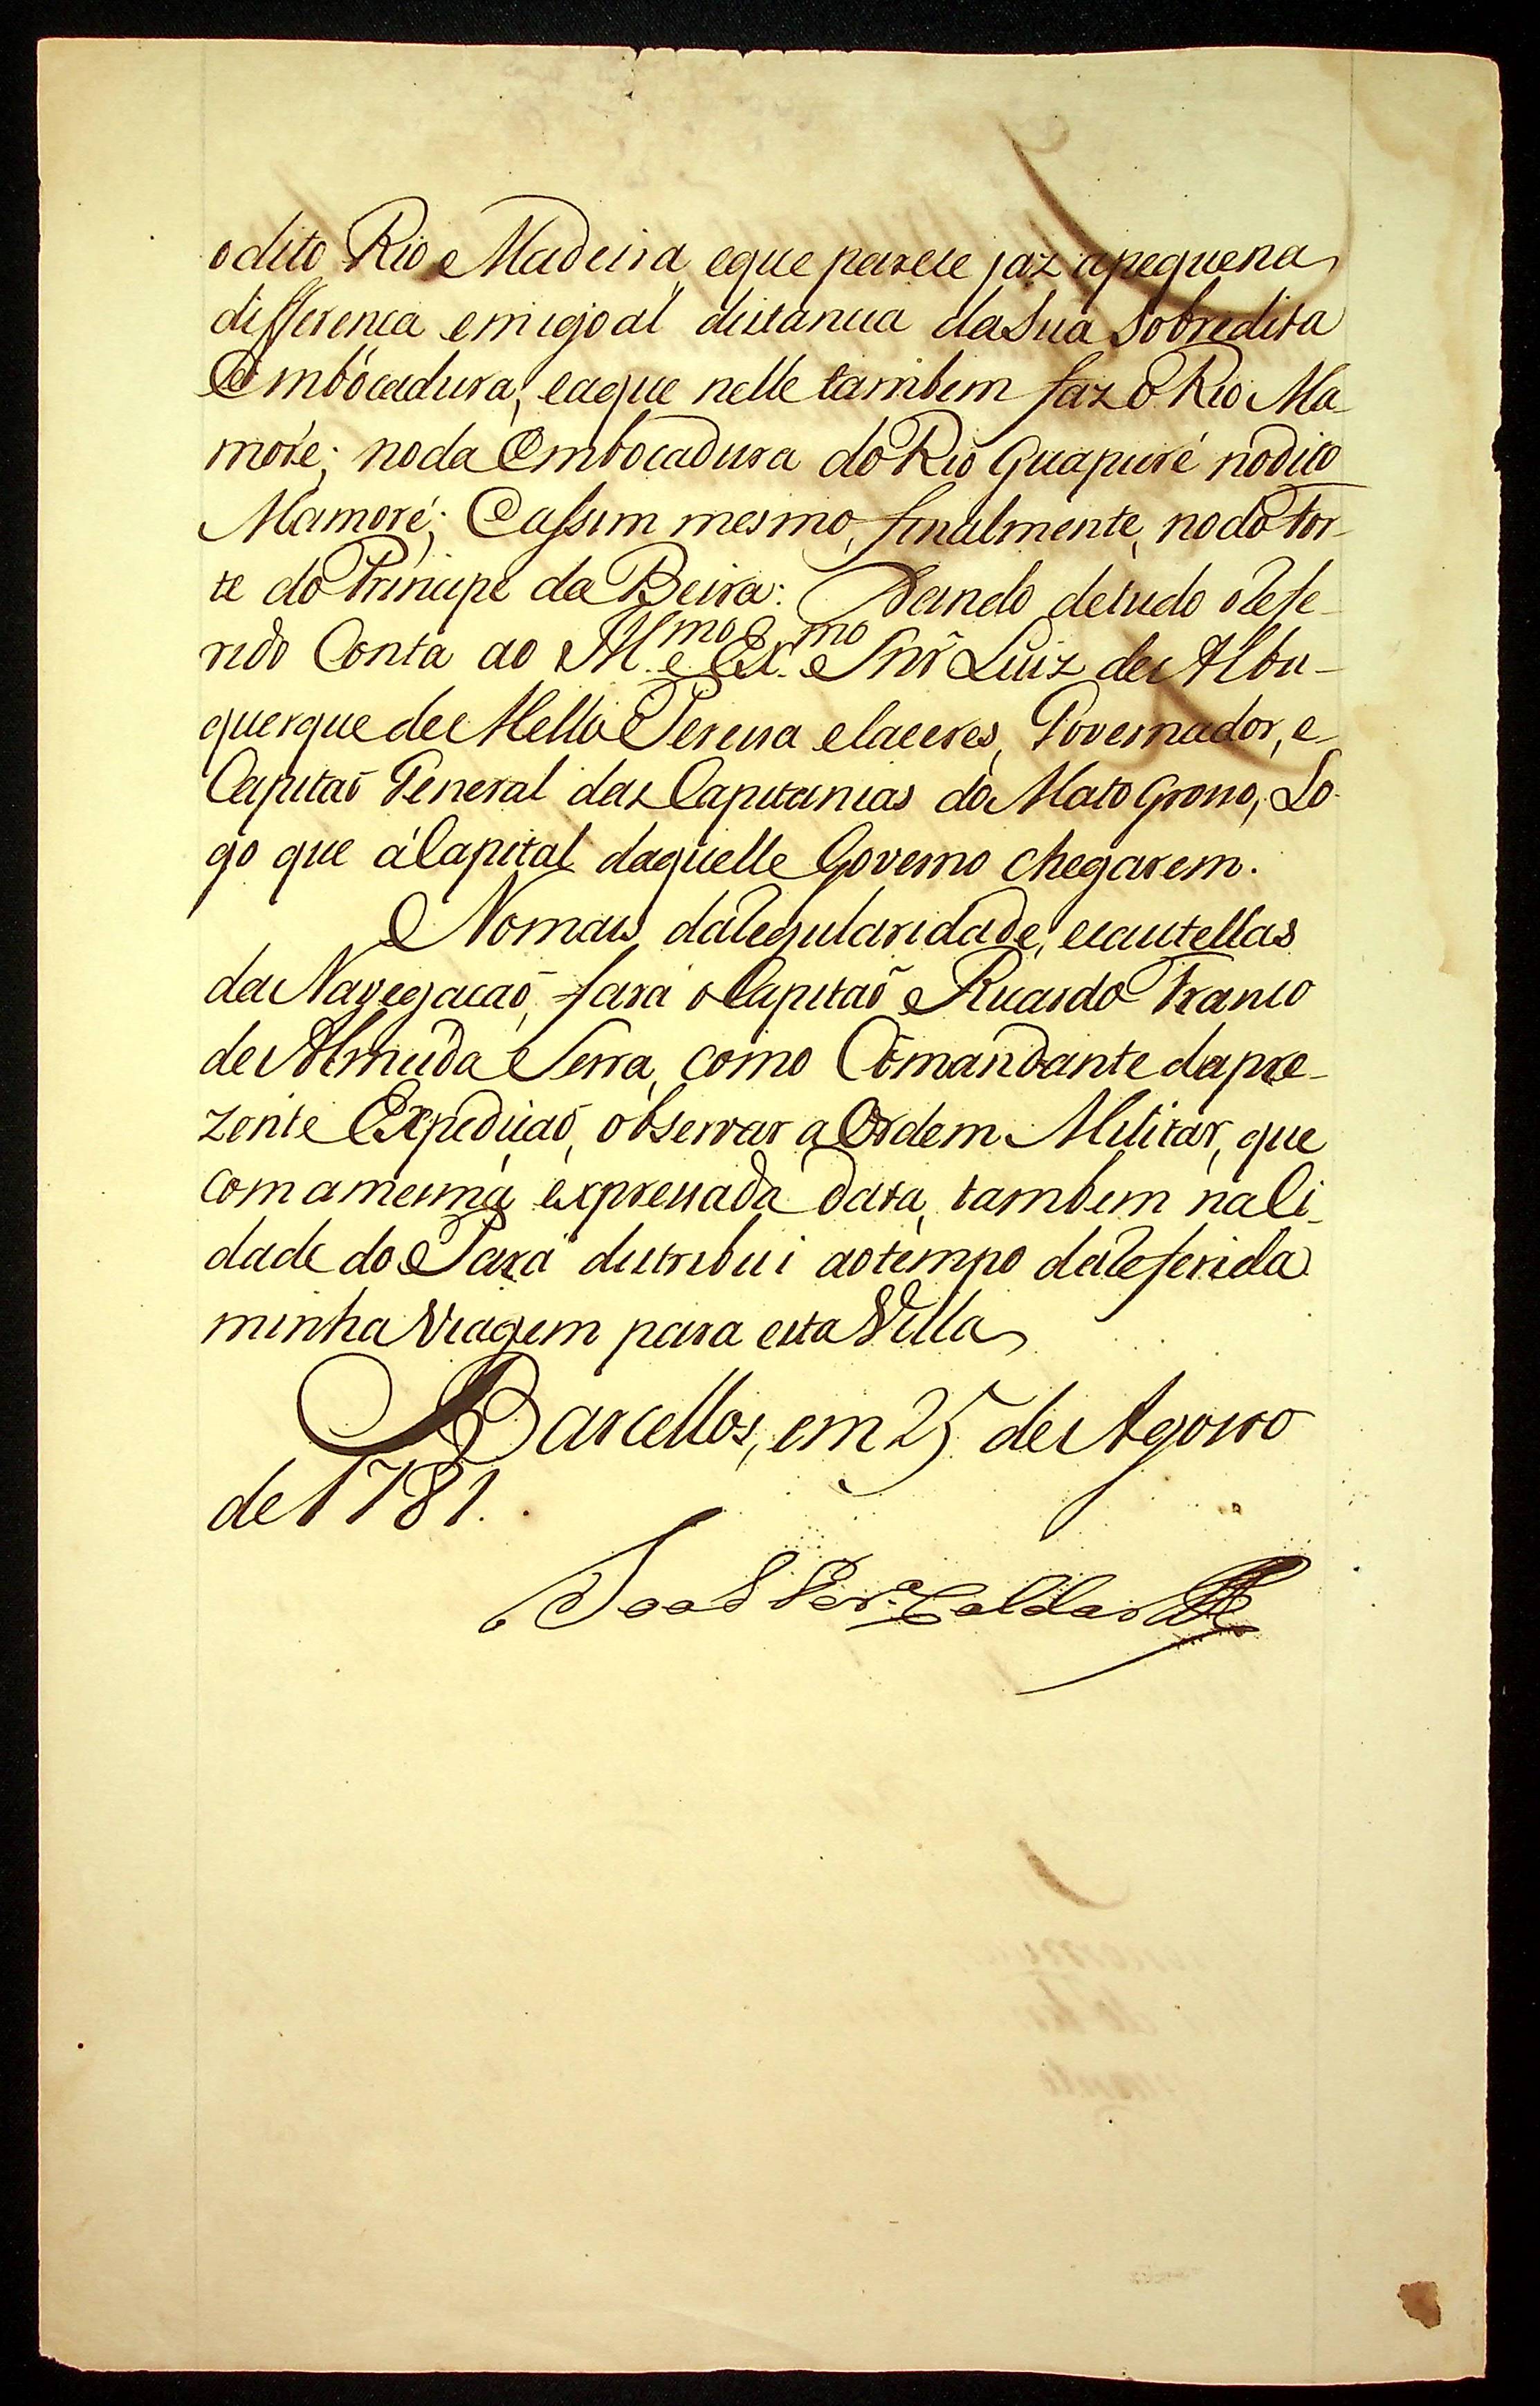 o dito Rio Madeira, e que parece jaz a pequena
differença em igoal distancia da Sua Sobredita
Embocadura; e a que nelle tambem faz o Rio Ma-
moré; no da Embocadura do Rio Guaporé no dito
Mamoré; E assim mesmo, finalmente, no do For-
te do Principe da Beira: Dando de tudo o Refe-
rido Conta ao Ill.mo e Ex.mo Snr̃ Luiz de Albu-
querque de Mello Pereira e Caceres, Governador, e
Capitaõ General das Capitanias do Mato Grosso, Lo-
go que á Capital daquelle Governo chegarem.
No mais da Regularidade, e cautellas
da Navegaçaõ, fará o Capitaõ Ricardo Franco
de Almeida Serra, como Comandante da pre-
zente Expediçaõ, observar a Ordem Militar, que
com a mesma expressada data, tambem na Ci-
dade do Pará distribui ao tempo da Referida
minha Viagem para esta Villa
Barcellos, em 25 de Agosto
de 1781.
Joaõ Per.ª Caldas